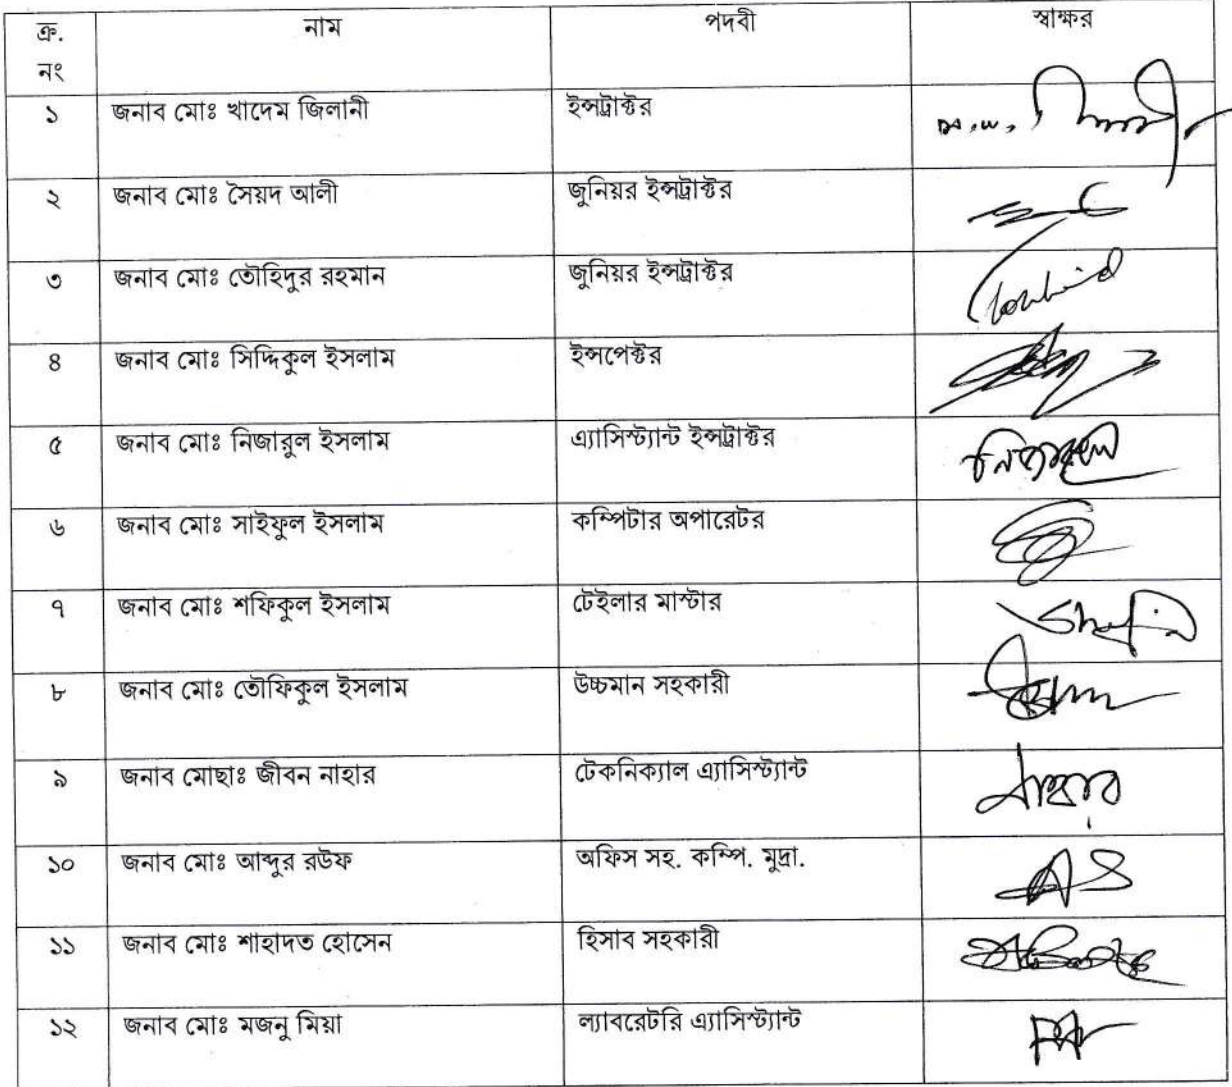 ক্র. নাম পদবী স্বাক্ষর
নং
১ জনাব মোঃ খাদেম জিলানী ইন্সট্রাক্টর
২ জনাব মোঃ সৈয়দ আলী জুনিয়র ইন্সট্রাক্টর
৩ জনাব মোঃ তৌহিদুর রহমান জুনিয়র ইন্সট্রাক্টর Touhid
৪ জনাব মোঃ সিদ্দিকুল ইসলাম ইন্সপেক্টর
৫ জনাব মোঃ নিজারুল ইসলাম এ্যাসিস্ট্যান্ট ইন্সট্রাক্টর নিজারুল
৬ জনাব মোঃ সাইফুল ইসলাম কম্পিটার অপারেটর
৭ জনাব মোঃ শফিকুল ইসলাম টেইলার মাস্টার
৮ জনাব মোঃ তৌফিকুল ইসলাম উচ্চমান সহকারী
৯ জনাব মোছাঃ জীবন নাহার টেকনিক্যাল এ্যাসিস্ট্যান্ট নাহার
১০ জনাব মোঃ আব্দুর রউফ অফিস সহ. কম্পি. মুদ্রা.
১১ জনাব মোঃ শাহাদত হোসেন হিসাব সহকারী
১২ জনাব মোঃ মজনু মিয়া ল্যাবরেটরি এ্যাসিস্ট্যান্ট